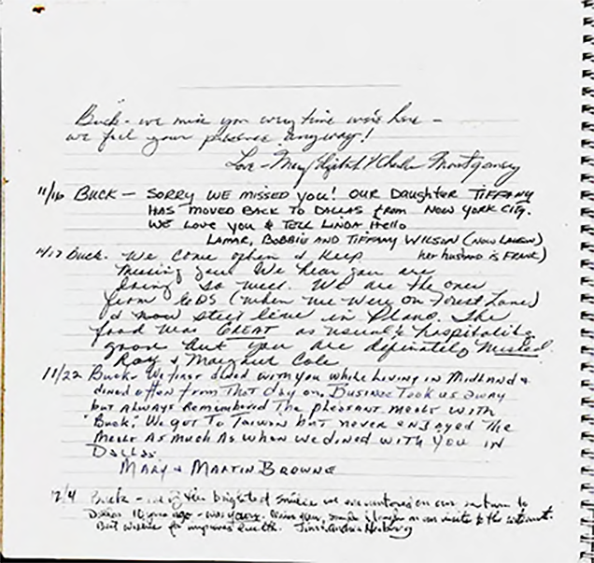 Buck - we miss you every time we're here -
we feel your presence anyway!
Love - Mary Elizabeth & Charles Montgomery
11/16 BUCK - SORRY WE MISSED YOU! OUR DAUGHTER TIFFANY
HAS MOVED BACK TO DALLAS from NEW YORK CITY.
WE LOVE YOU & TELL LINDA Hello
LAMAR, BOBBIE AND TIFFANY WILSON (NOW
her husband is FRANK)
11/17 Buck. We come often & keep
missing you. We hear you are
doing so well. We are the ones
from EDS (when we were on Forest Lane)
& now still live in Plano. The
food was GREAT as usual & hospitality
good but you are definitely missed.
Ray & Margaret Cole
11/22 Buck - We first dined with you while living in Midland &
dined often from that day on. Business took us away
but always remembered the pleasant meals with
"Buck". We got to Taiwan but never enjoyed the
meals as much as when we dined with you in
Dallas.
MARY & MARTIN BROWNE
12/4 Buck - the brightest smile we encountered on our return to
Dallas 10 years ago - was yours. Miss your smile & laugh on our visits to the restaurant.
Best wishes for improved health.